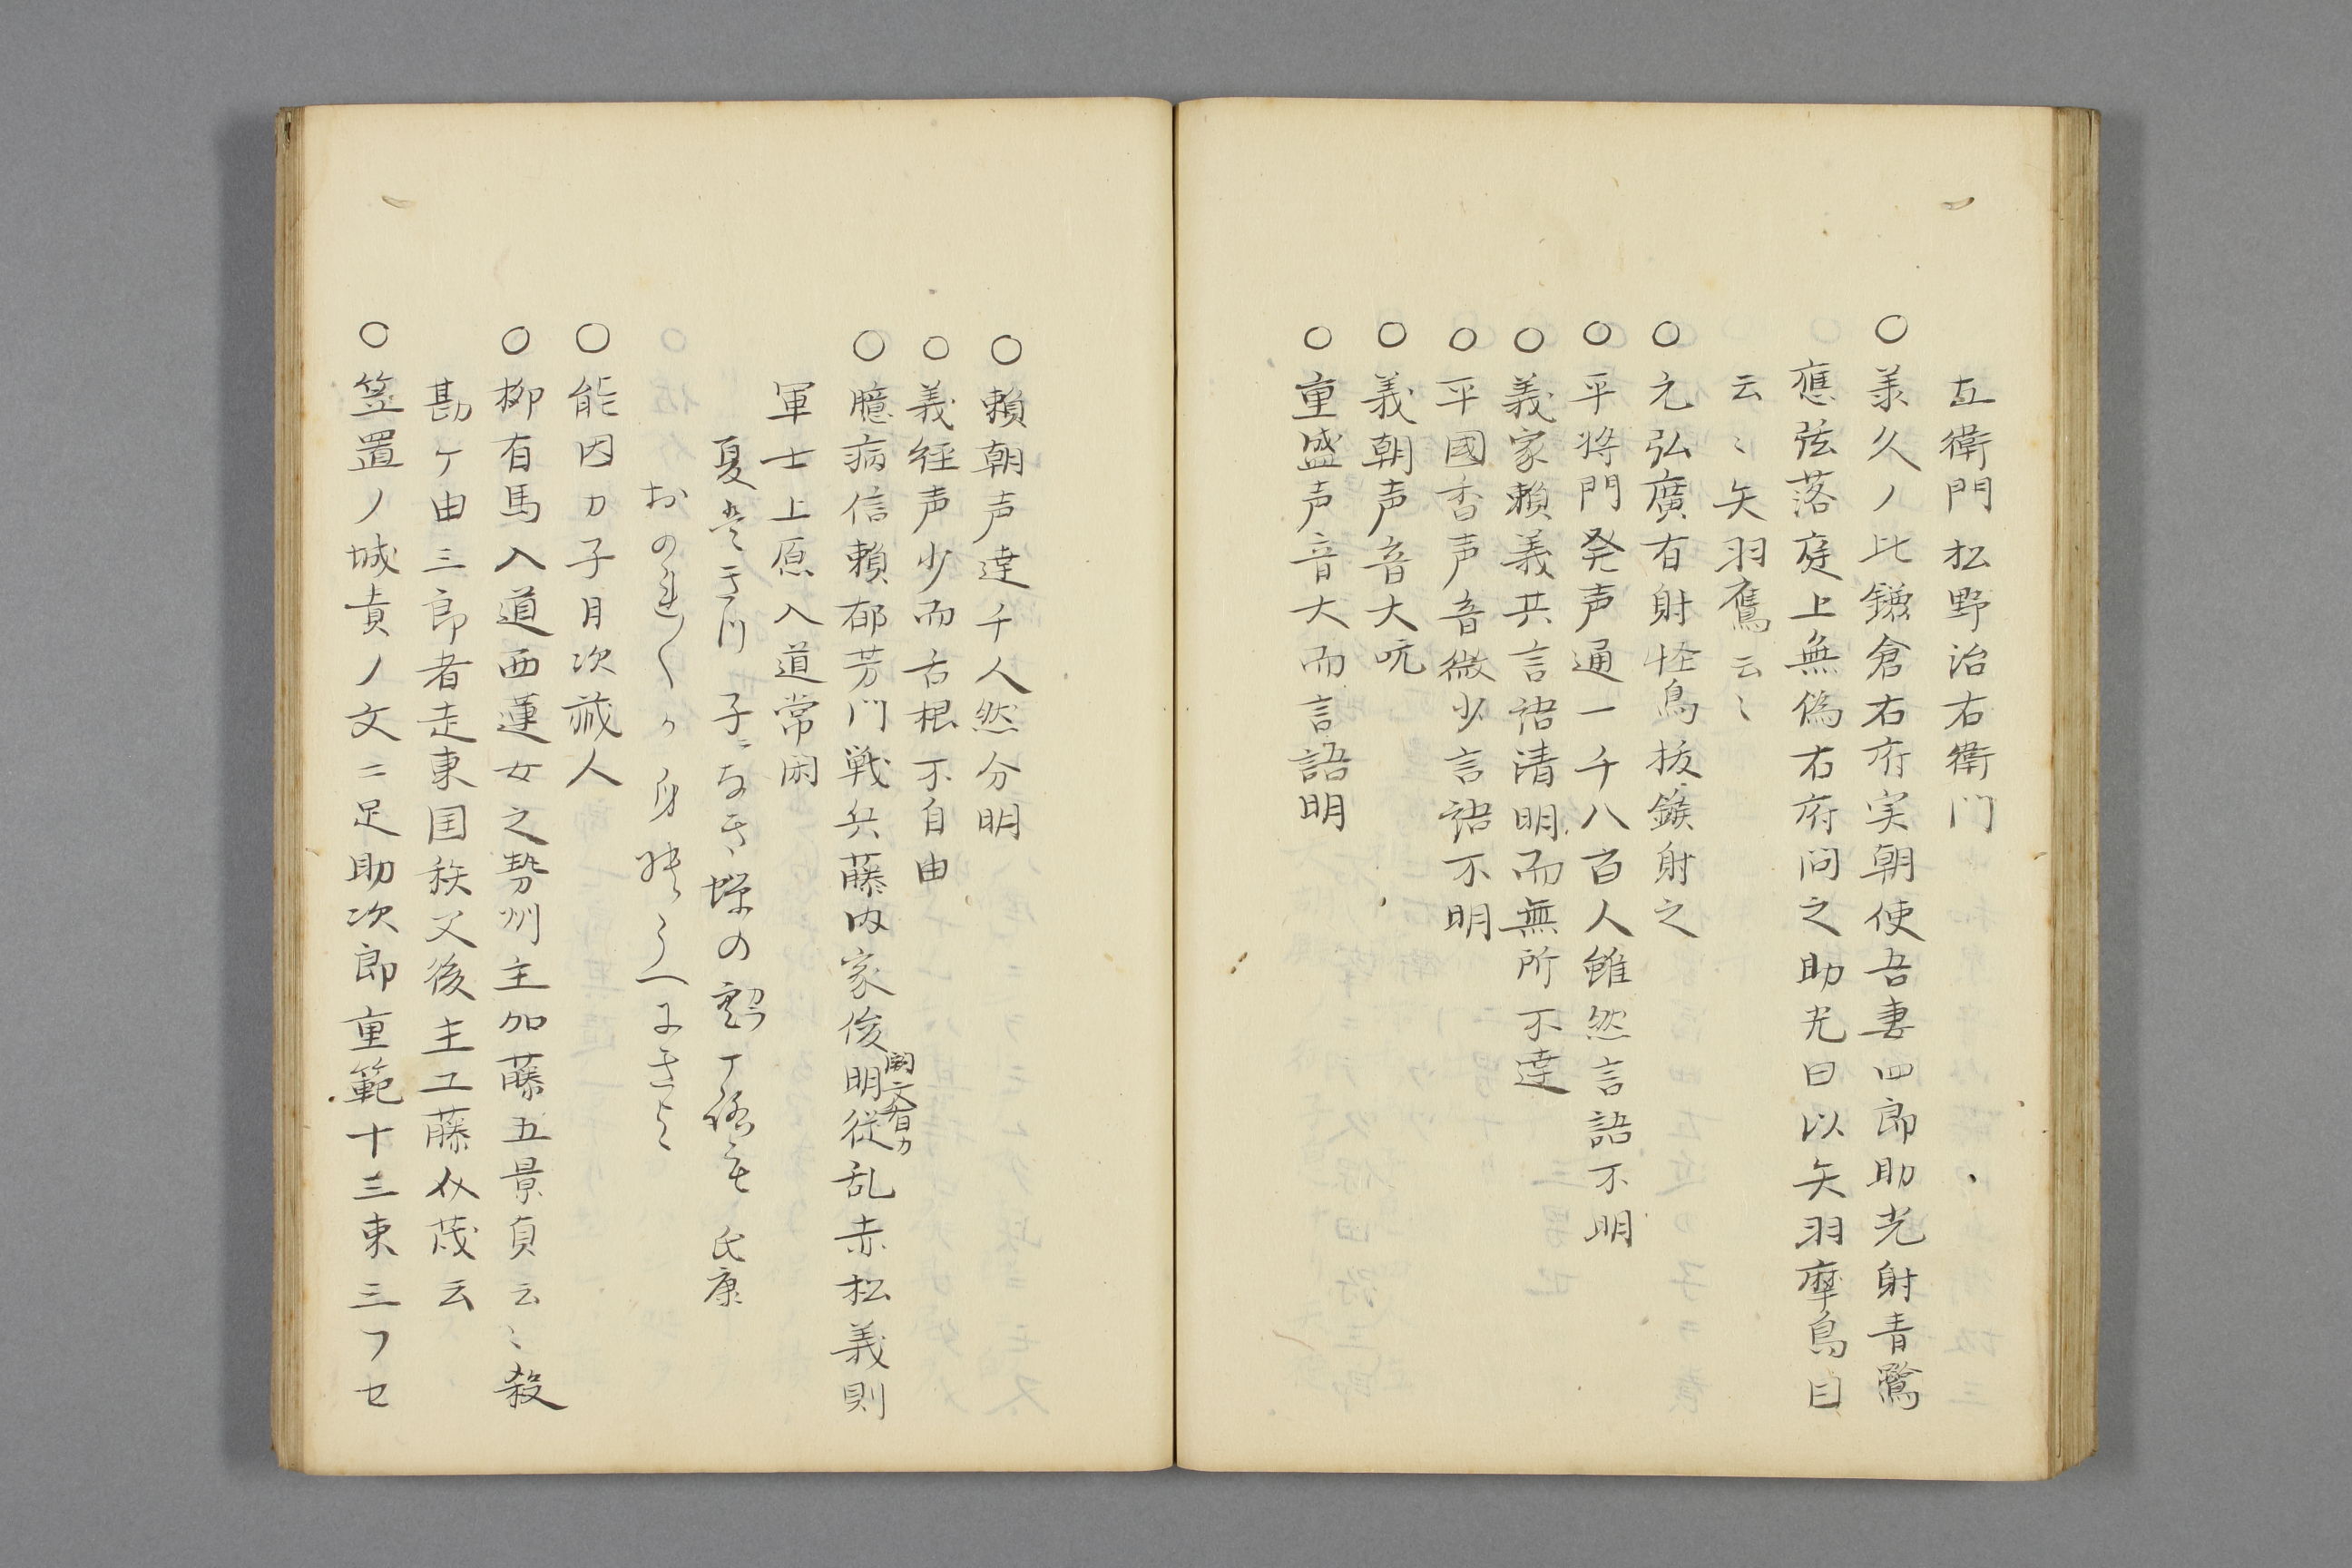 左衛門松野治右衛門
○承久ノ比鎌倉右府実朝使吾妻四郎助光射青鷺
應弦落庭上無傷右府问之助光曰以矢羽摩鳥目
云〻矢羽鷹云〻
○元弘廣有射怪鳥抜鏃射之
○平将門発声通一千八百人雖然言語不明
○義家頼義共言語清明而無所不達
○平國香声音微少言語不明
○義朝声音大吭
○重盛声音大而言語明
○頼朝声達千人然分明
○義経声少而舌根不自由
○臆病信頼郁芳门戦兵藤内家俊明従乱赤松義則
闕文有カ
軍士上原入道常閑
夏きつ子になき蝉の
おのれ〳〵か身のうへにきよ
氏康
○能因カ子月次蔵人
○柳有馬入道西蓮女之勢州主加藤五景貞云〻殺
勘ケ由三郎者走東国秩父後主工藤介茂云
○笠置ノ城責ノ文ニ足助次郎重範十三束三フセ